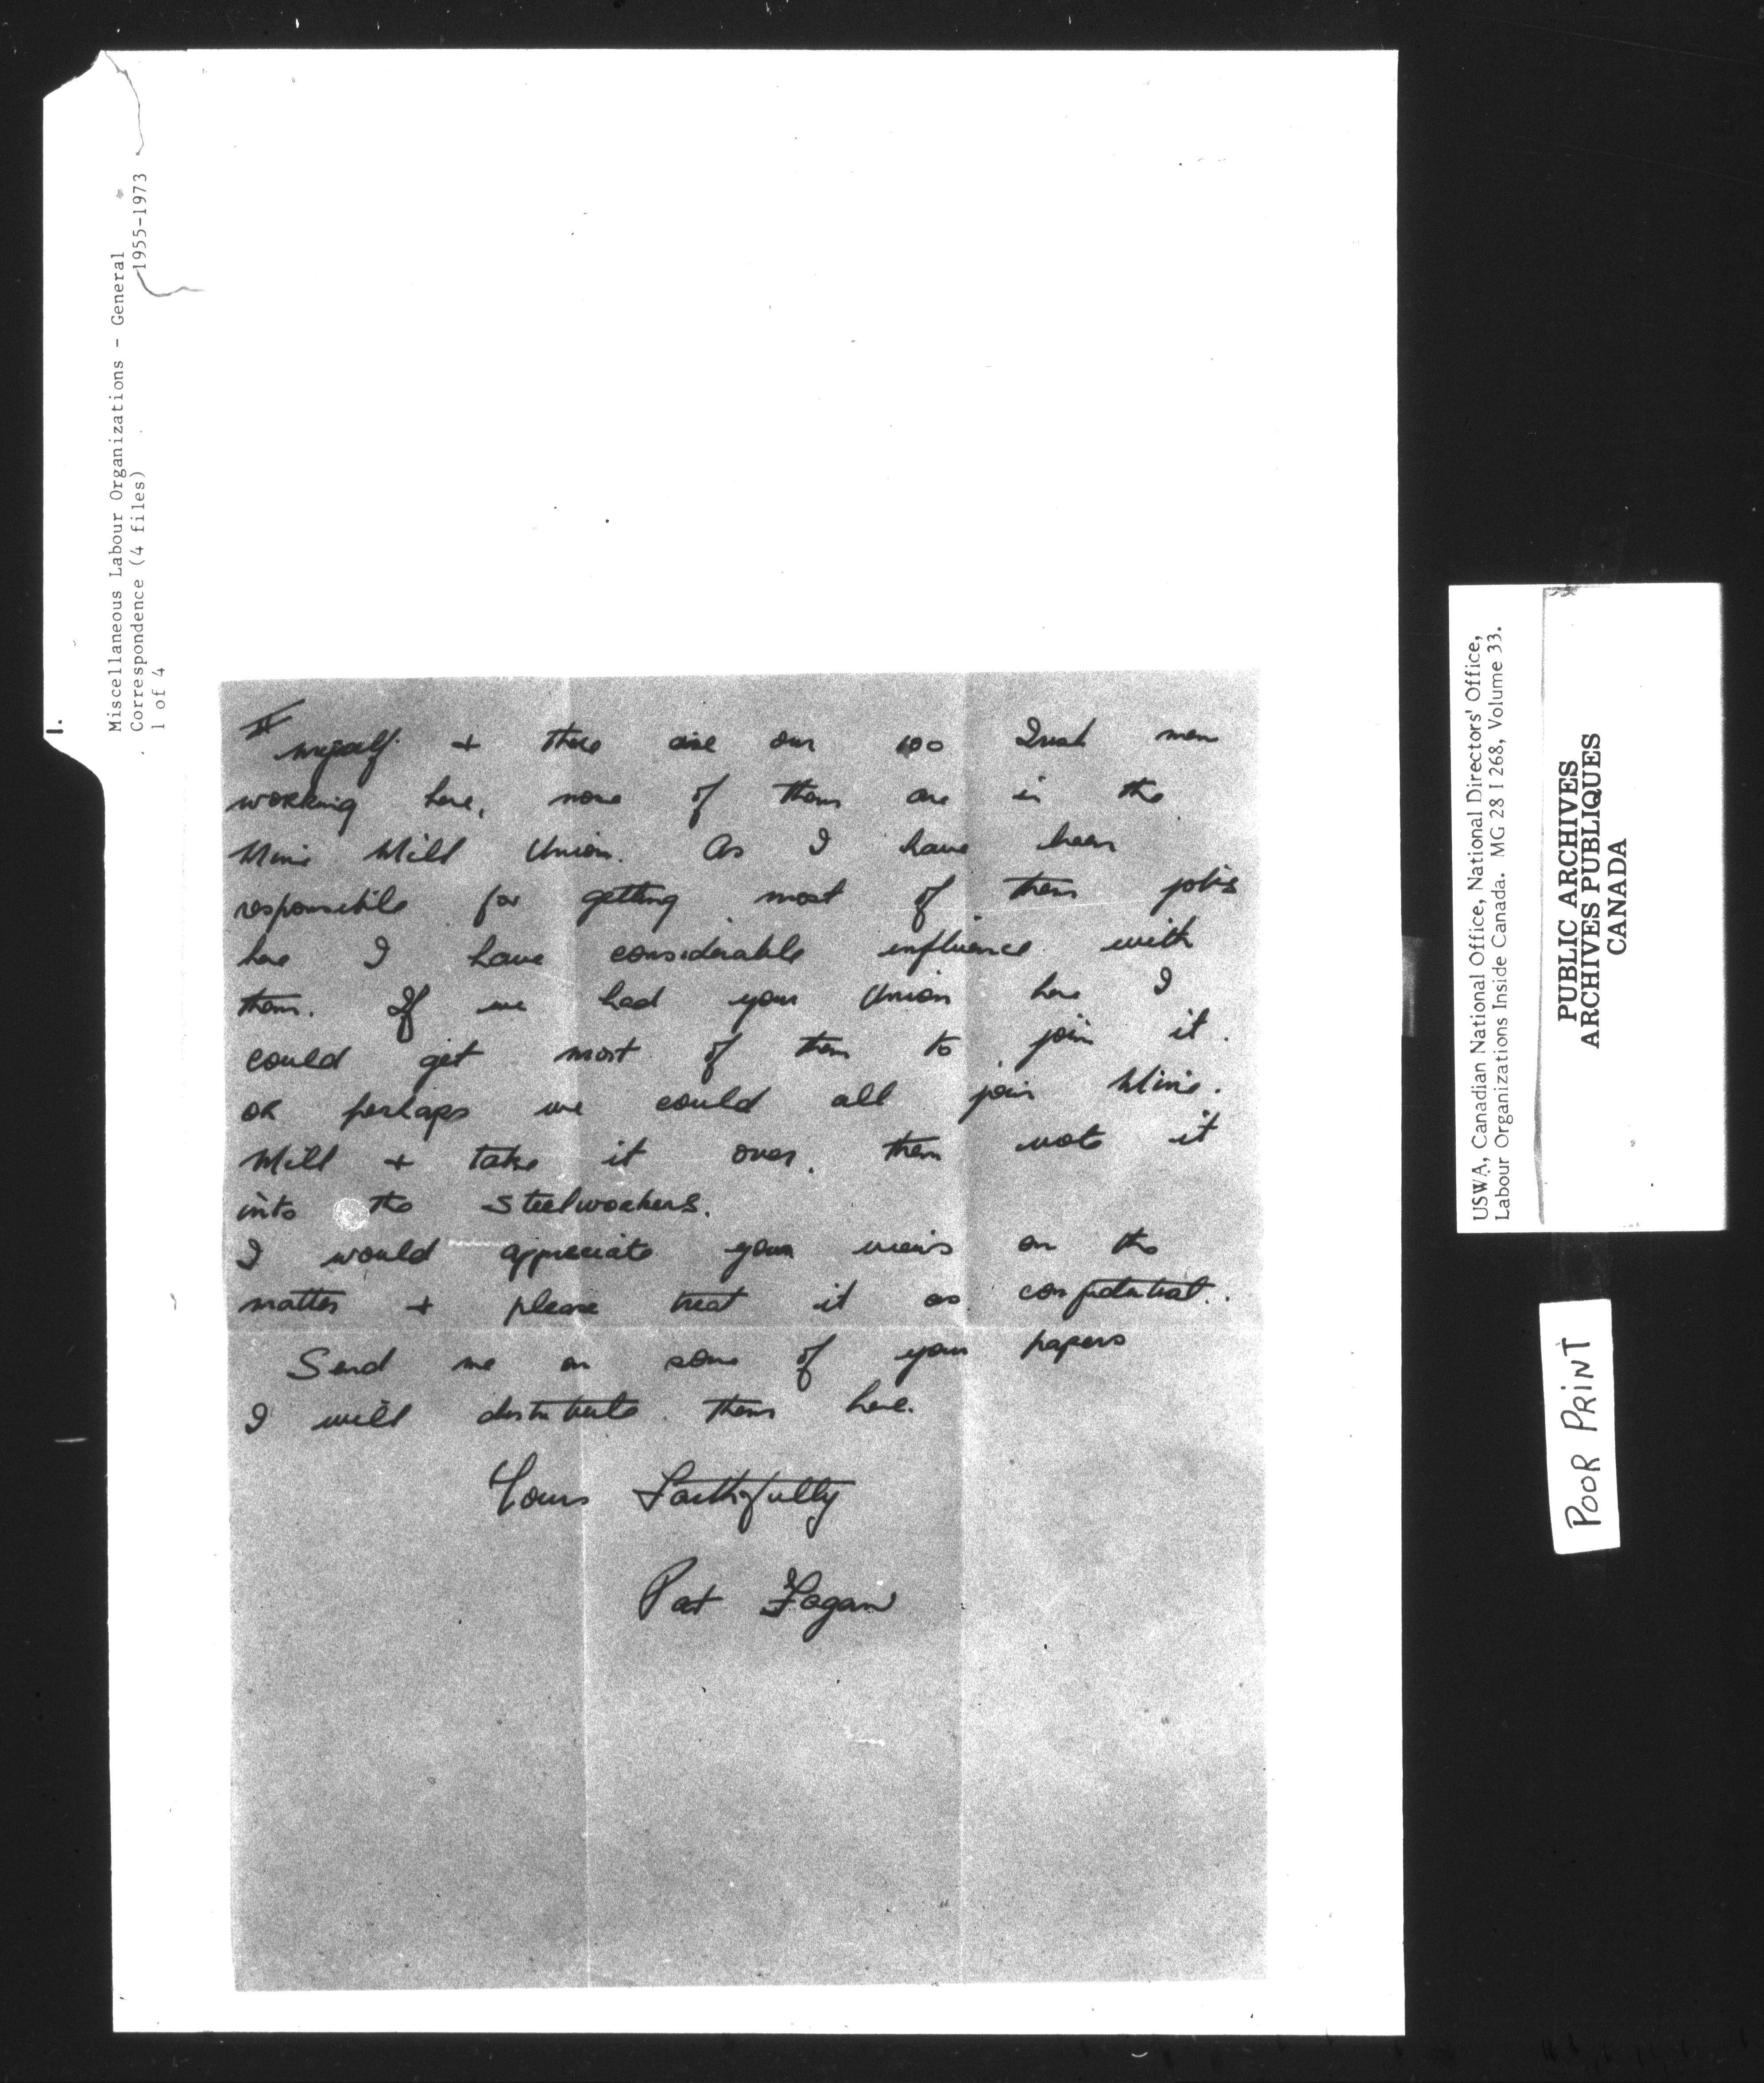 1.
Miscellaneous Labour Organizations - General
Correspondence (4 files) 1955-1973
1 of 4
II
myself + there are our 100 Irish men
working here, none of them are in the
Mine Mill Union. As I have been
responsible for getting most of them jobs
here I have considerable influence with
them. If we had your Union here I
could get most of them to join it.
or perhaps we could all join Mine.
Mill + take it over, then vote it
into the Steelworkers.
I would appreciate your views on the
matter + please treat it as confidential.
Send me on some of your papers
I will distribute them here.
Yours Faithfully
Pat Fagan
USWA, Canadian National Office, National Directors' Office,
Labour Organizations Inside Canada. MG 28 I 268, Volume 33.
PUBLIC ARCHIVES
ARCHIVES PUBLIQUES
CANADA
POOR PRINT